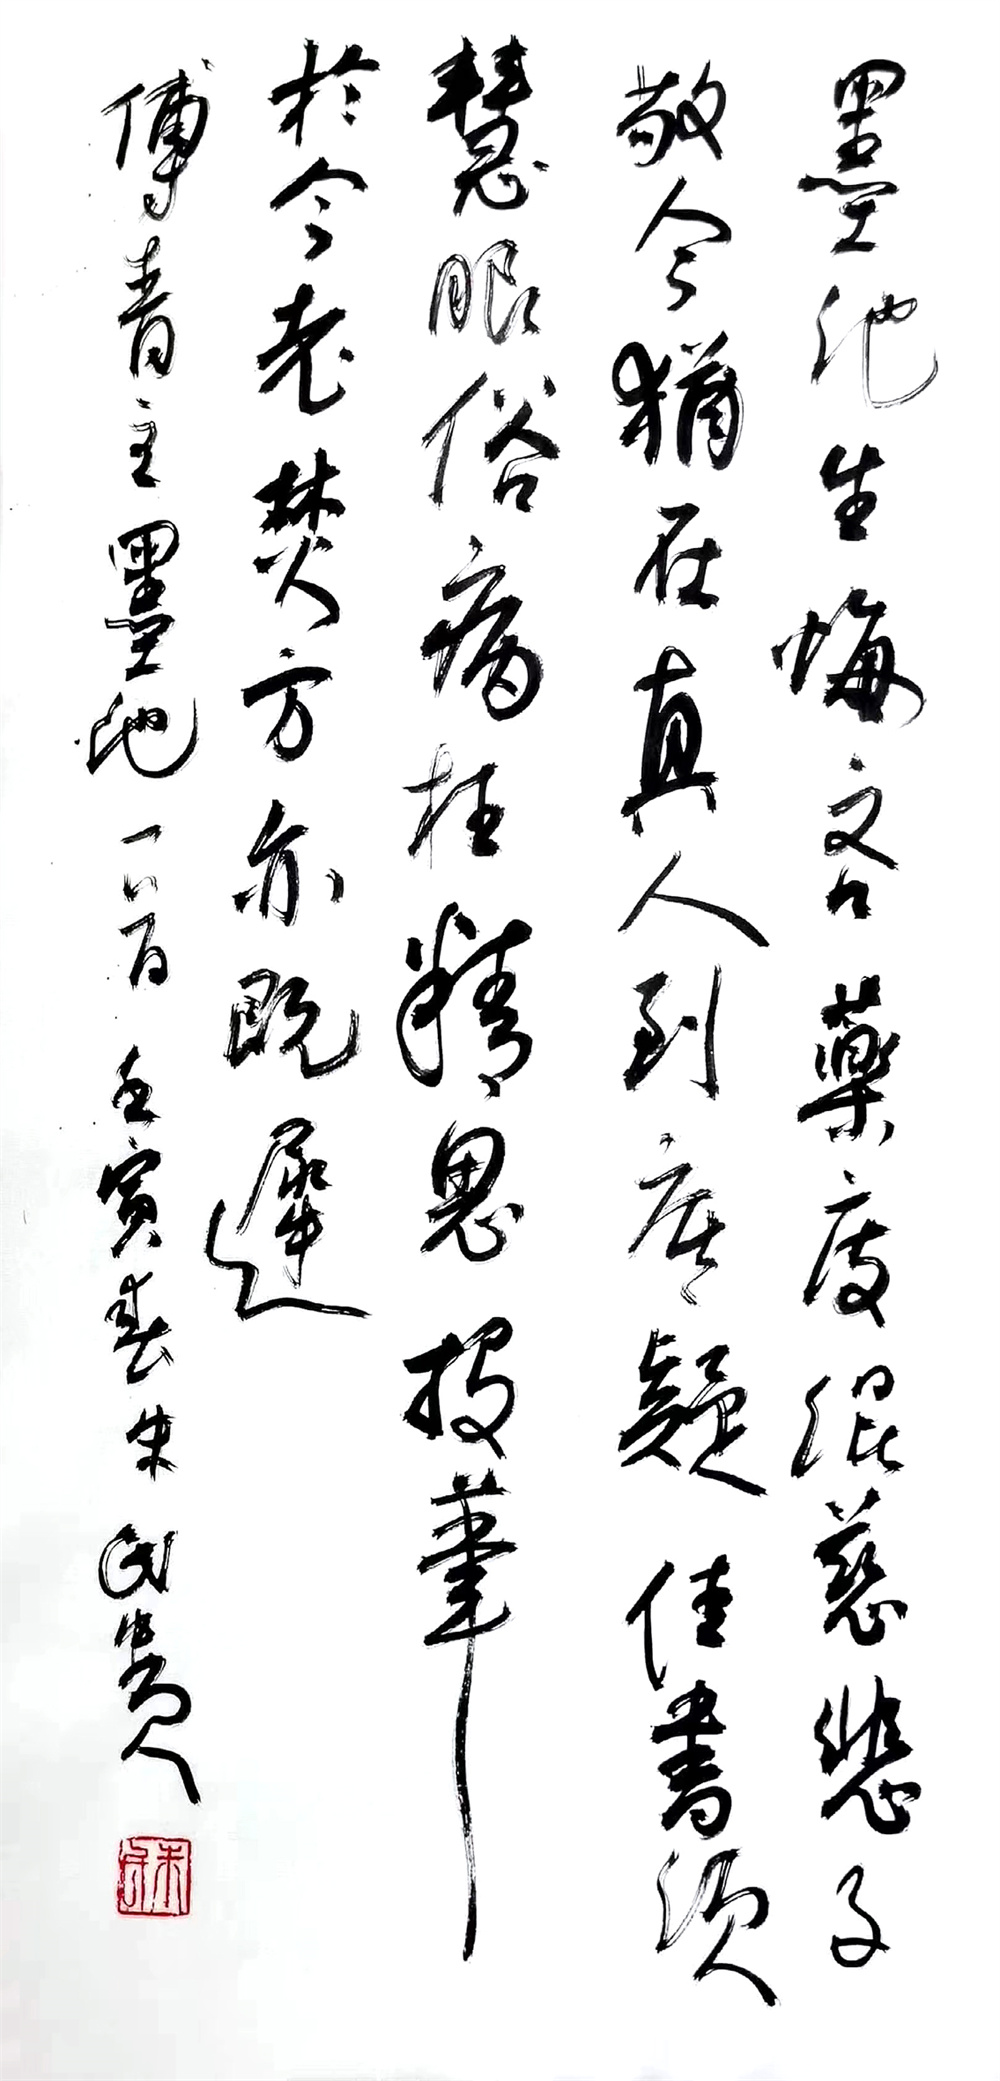 墨池生悔吝藥庋混慈悲子
敬今猶在真人到底疑佳書須
慧眼俗病枉精思投筆
於今老焚方亦既遲
傅青主墨池一首壬寅春朱民貴